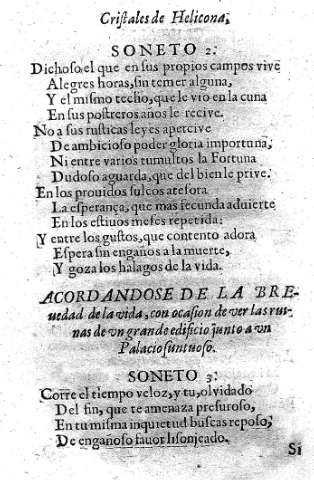 Cristales de Helicona,
SONETO 2.
Dichoso el que en sus propios campos vive
Alegres horas, sin temer alguna,
Y el mismo techo, que le vio en la cuna
En sus postreros años le recive.
No a sus rusticas leyes apercive
De ambicioso poder gloria importuna,
Ni entre varios tumultos la Fortuna
Dudoso aguarda, que del bien le prive.
En los prouidos sulcos atesora
La esperança, que mas fecunda aduierte
En los estiuos meses repetida:
Y entre los gustos, que contento adora
Espera sin engaños a la muerte,
Y goza los halagos de la vida.
ACORDANDOSE DE LA BRE-
uedad de la vida, con ocasion de ver las rui-
nas de vn grande edificio junto a vn
Palacio suntuoso.
SONETO 3.
Corre el tiempo veloz, y tu, oluidado
Del fin, que te amenaza presuroso,
En tu misma inquietud buscas reposo,
De engañoso fauor lisonjeado.
Si